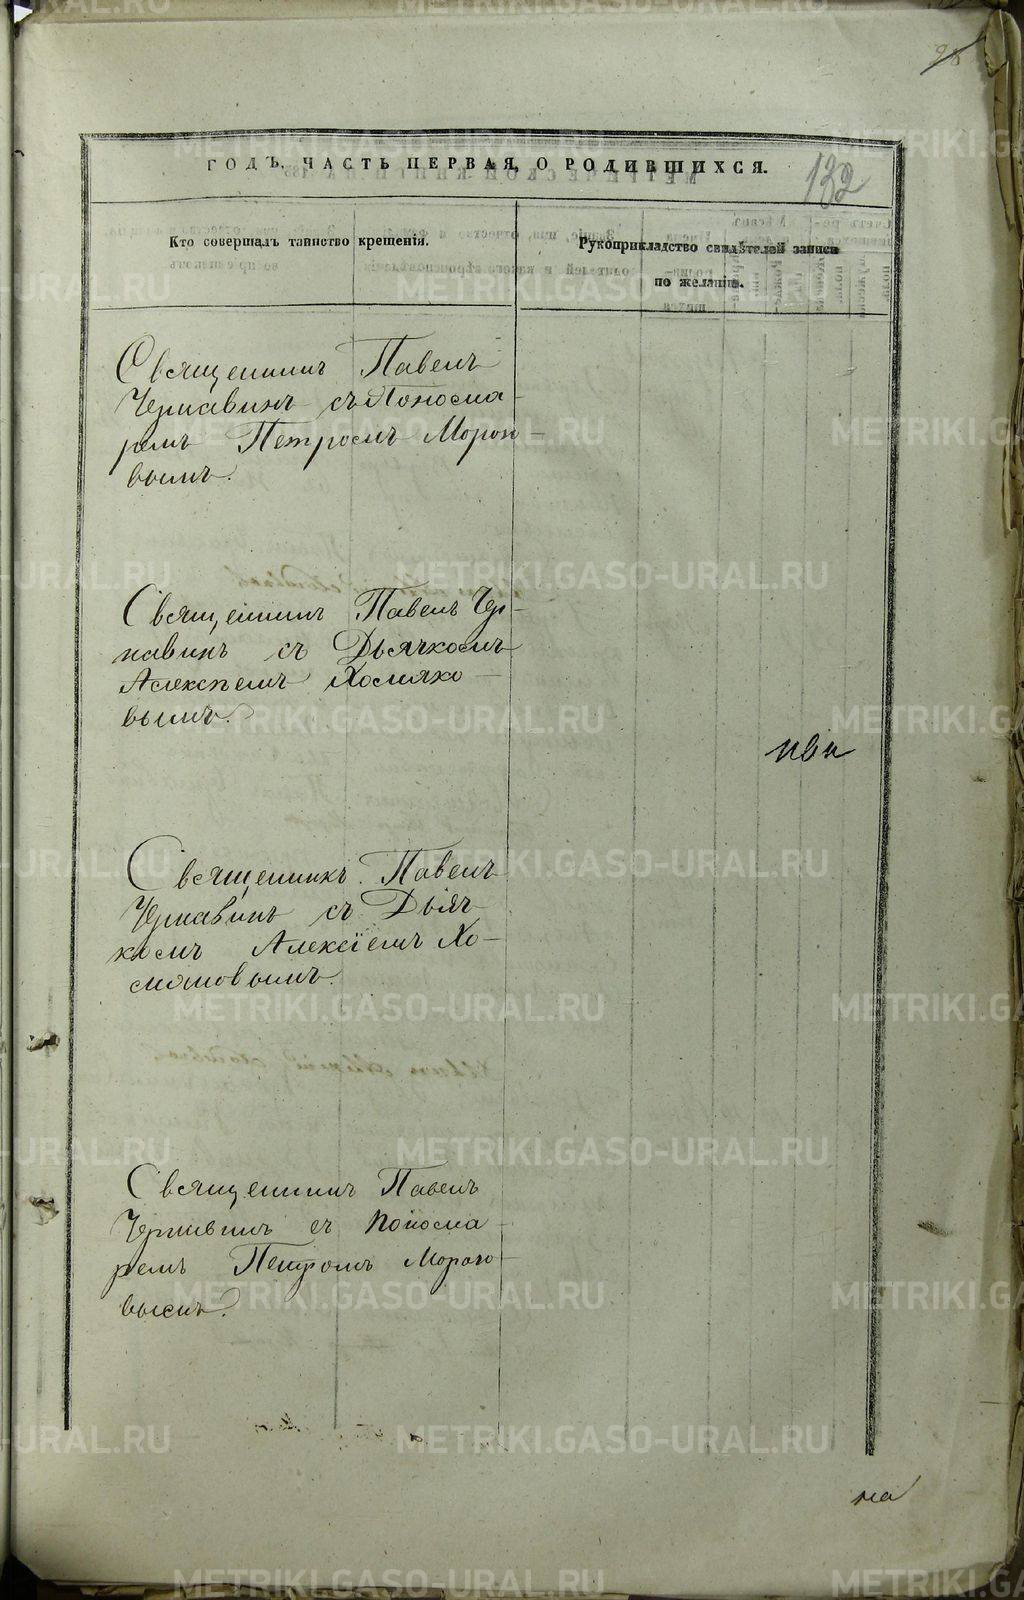 132
ГОДЪ, ЧАСТЬ ПЕРВАЯ, О РОДИВШИХСЯ.
Кто совершалъ таинство крещенія.
Рукоприкладство свидѣтелей записи
по желанію.
Священникъ Павелъ
Чернавинъ съ Поноома-
ремъ Петромъ Мороз-
вымъ.
Священникъ Павелъ Чер-
навинъ съ Дьячкомъ
Алексѣемъ Хомяко-
вымъ.
Священникъ Павелъ
Чернавинъ съ Дьяч-
комъ Алексіемъ Хо-
мяковымъ.
Священникъ Павелъ
Чернавинъ съ Поноома-
ремъ Петромъ Морозо-
вымъ.
на
METRIKI.GASO-URAL.RU